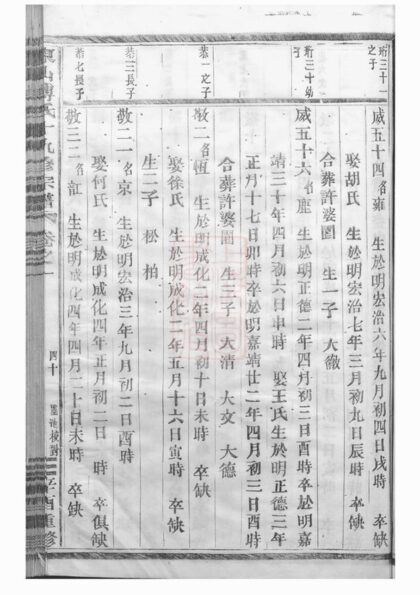 珩三十一之子
威五十四名雍 生於明宏治六年九月初四日戌時 卒缺
娶胡氏 生於明宏治七年三月初九日辰時 卒缺
合葬許婆園 生一子 大徹
珩三十幼子
威五十六名鹿 生於明正德二年四月初三日酉時卒於明嘉
靖三十年四月初六日申時 娶王氏生於明正德三年
正月十七日卯時卒於明嘉靖廿二年四月初三日酉時
合葬許婆園 生三子 大清 大文 大德
恭一之子
敬二名恆 生於明成化二年四月初十日未時 卒缺
娶徐氏 生於明成化二年五月十六日寅時 卒缺
生二子 松 柏
恭三長子
敬二一名京 生於明宏治三年九月初二日酉時
娶何氏 生於明成化四年正月初二日 時 卒俱缺
恭七長子
敬三二名 生於明成化四年四月二十日未時 卒缺
氏十九修宗譜 卷之一
四十
校對
辛酉重修